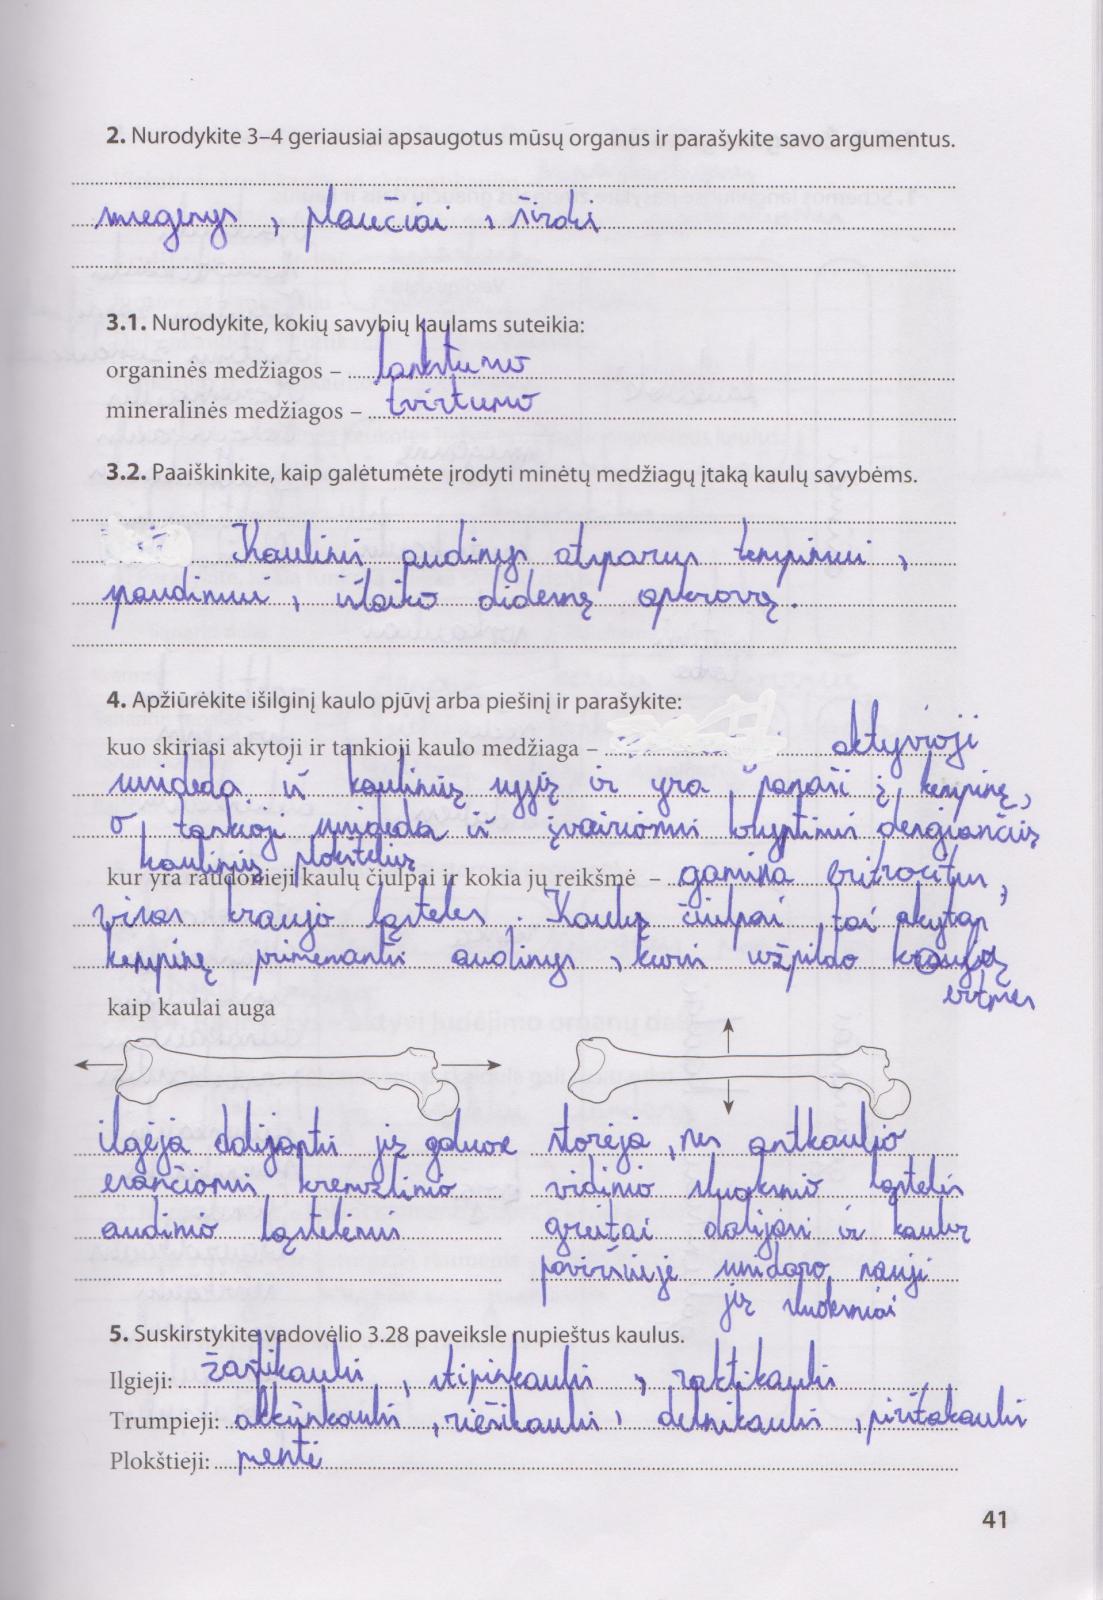 2. Nurodykite 3–4 geriausiai apsaugotus mūsų organus ir parašykite savo argumentus.
smegenys, plaučiai, širdis
3.1. Nurodykite, kokių savybių kaulams suteikia:
organinės medžiagos – lankstumo
mineralinės medžiagos – tvirtumo
3.2. Paaiškinkite, kaip galėtumėte įrodyti minėtų medžiagų įtaką kaulų savybėms.
Kaulinis audinys atsparus tempimui,
spaudimui, išlaiko didesnę apkrovą.
4. Apžiūrėkite išilginį kaulo pjūvį arba piešinį ir parašykite:
kuo skiriasi akytoji ir tankioji kaulo medžiaga – aktyvioji
susideda iš kaulinių sijų ir yra panaši į kempinę,
o tankioji susideda iš įvairiomis kryptimis dengiančiis
kaulinius plokštelius
kur yra raudonieji kaulų čiulpai ir kokia jų reikšmė – gamina eritrocitus,
visas kraujo ląsteles. Kaulų čiulpai tai akytas
kempinę primenantis audinys, kuris užpildo kraujų
ertmes
kaip kaulai auga
ilgėja dalijantis jų galuose
esančiomis kremzlinio
audinio ląstelėmis
storėja, nes antkaulio
vidinio sluoksnio ląstelės
greitai dalijasi ir kaulų
paviršiuje susidaro nauji
jų sluoksniai
5. Suskirstykite vadovėlio 3.28 paveiksle nupieštus kaulus.
Ilgieji: žastikaulis, stipinkaulis, raktikaulis
Trumpieji: alkūnkaulis, riešikaulis, delnikaulis, pirštakaulis
Plokštieji: mentė
41